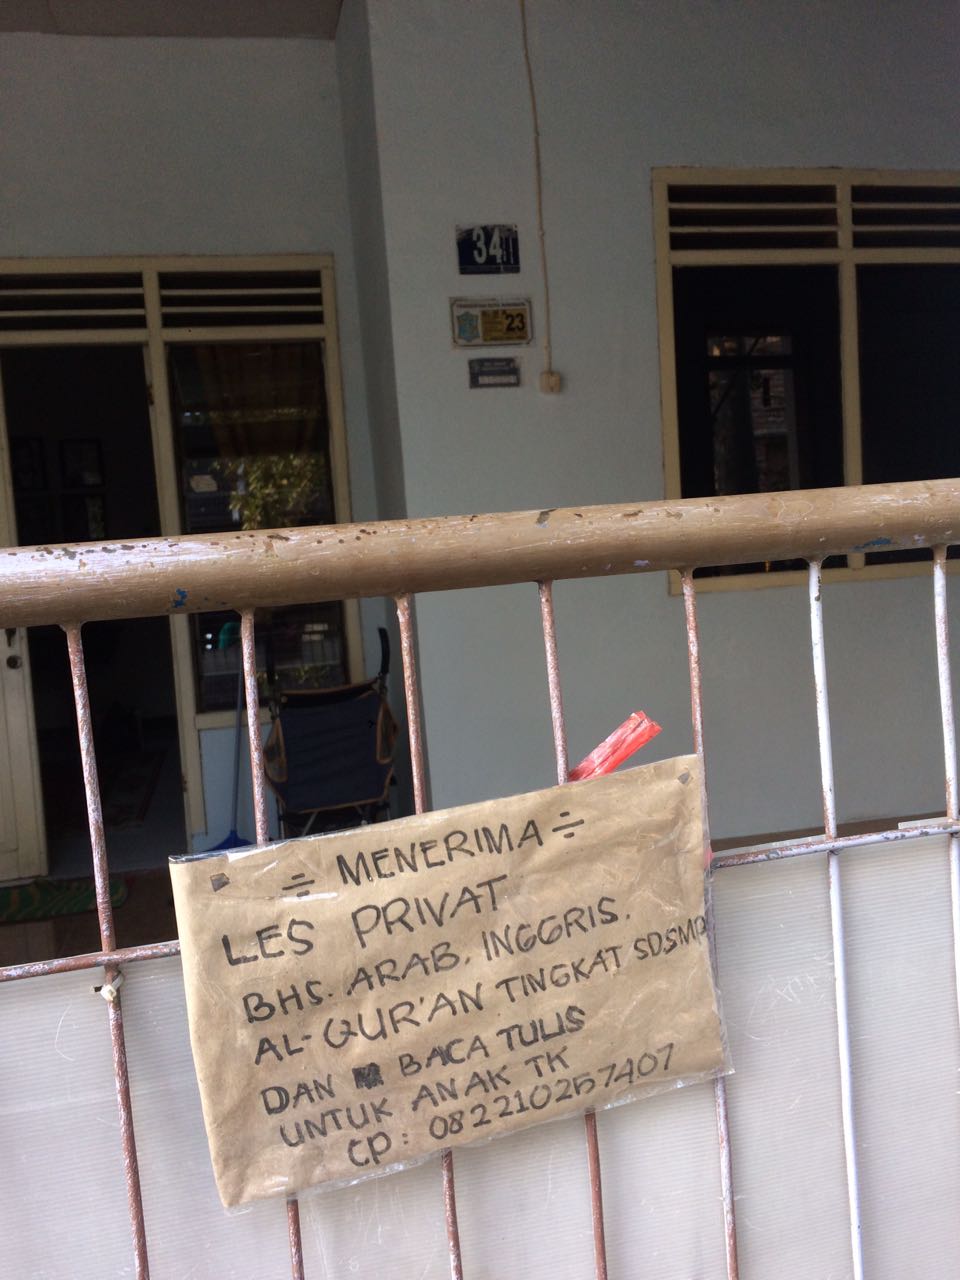 34
23
÷ MENERIMA ÷
LES PRIVAT
BHS. ARAB. INGGRIS.
AL-QUR'AN TINGKAT SD.SMP
DAN BACA TULIS
UNTUK ANAK TK
CP: 082210257407